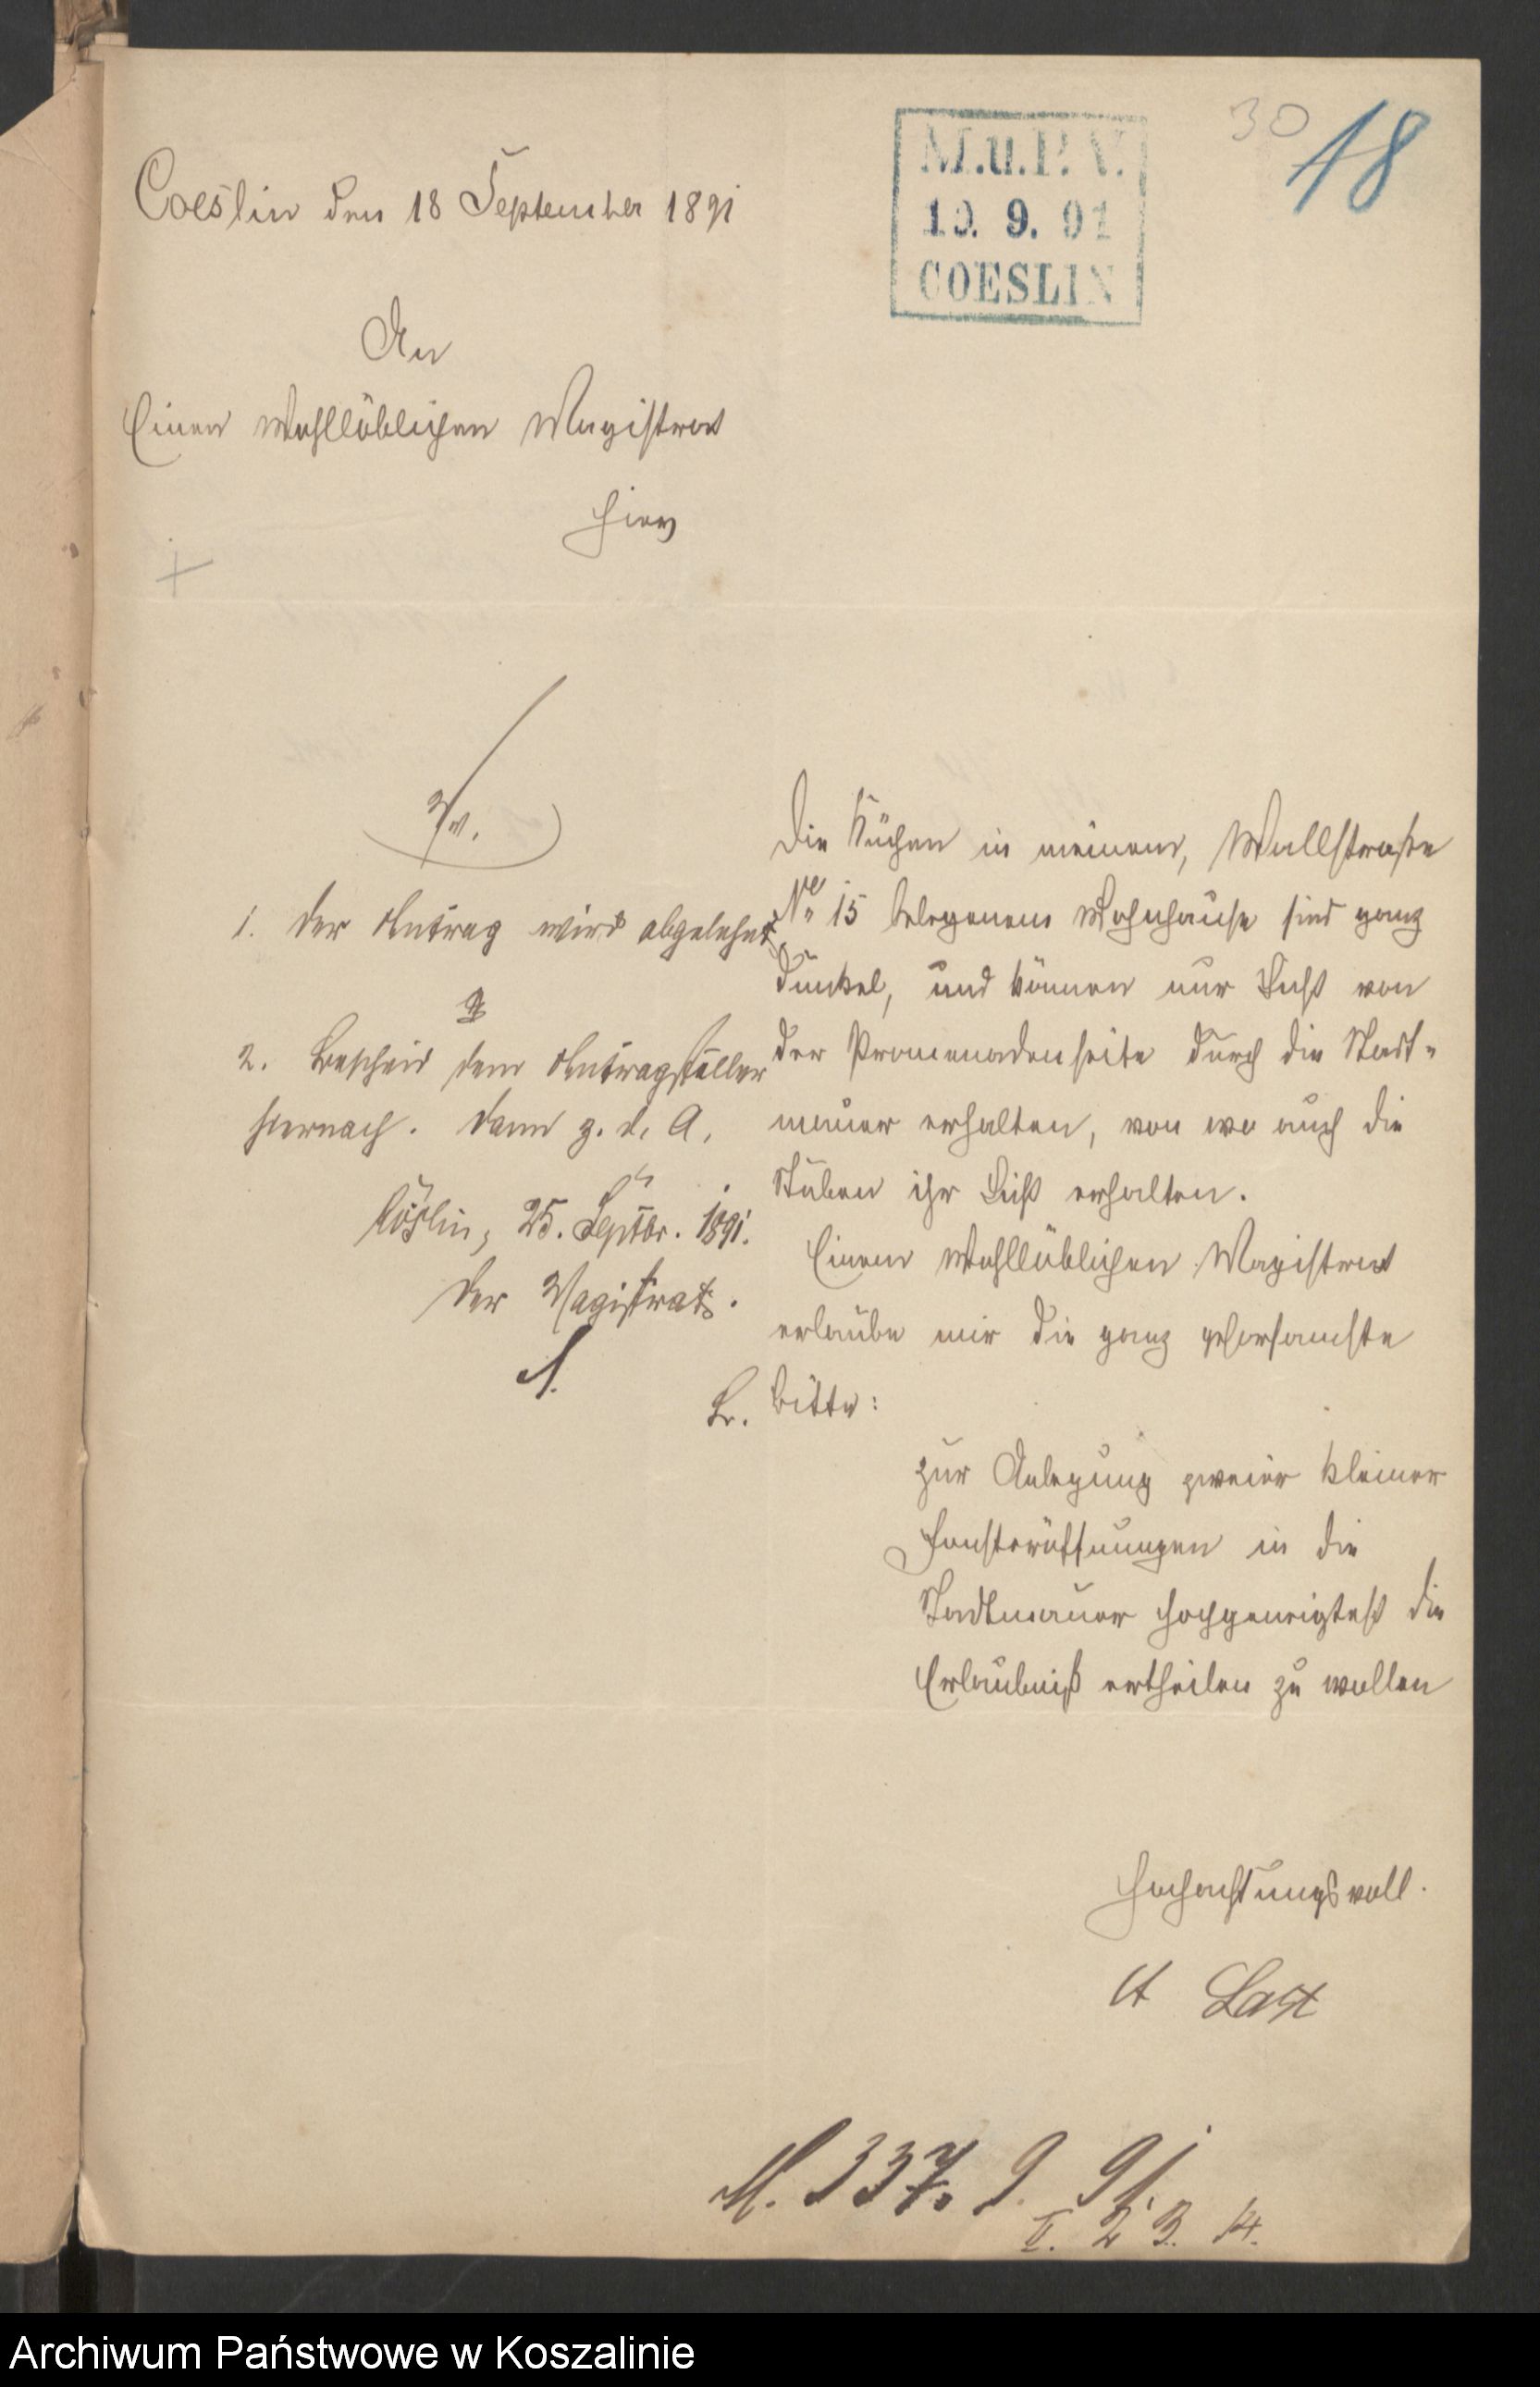 30
18
M.u.P.V.
19. 9. 91
COESLIN
Coeslin den 18 September 1891
An
Einen Wohllöblichen Magistrat
hier
Die Küchen in meinem, Wallstraße
No 15 belegenem Wohnhause sind ganz
dunkel, und können nur Licht von
der Promenadenseite durch die Stadt-
mauer erhalten, von wo auch die
Stuben ihr Licht erhalten.
Einem Wohllöblichen Magistrat
erlaube mir die ganz gehorsamste
Bitte:
zur Anlegung zweier kleiner
Fensteröffnungen in die
Stadtmauer hochgeneigtest die
Erlaubniß ertheilen zu wollen
Hochachtungsvoll.
A Last
1. Der Antrag wird abgelehnt.
2. Bescheid dem Antragsteller
hiernach. Dann z. d. A.
Cöslin, 25. Septbr. 1891.
Der Magistrat.
Br.
M. 337. 9. 91.
II. 2 3. 14.
Archiwum Państwowe w Koszalinie